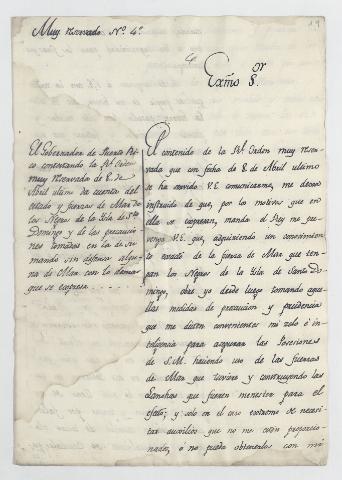 Muy reservado Nº. 4º.
Exmo Sor.
El Gobernador de Puerto Rico
contextando la Rl. Orden
muy reservada de 8 de
Abril ultimo da cuenta del
estado y fuerzas de Mar de
los Negros de la Isla de Sto.
Domingo y de las precauciones
tomadas en la de su
mando sin defensa alguna
de Mar con lo demas
que se expresa
El contenido de la Rl. Orden muy reservada
que con fecha de 8 de Abril ultimo
se ha servido V.E. comunicarme, me dexa
instruido de que, por los motivos que en
ella se expresan, manda el Rey me prevenga
V.E. que, adquiriendo un conocimiento
exacto de la fuerza de Mar que tengan
los Negros de la Isla de Santo Domingo,
obre yo desde luego tomando aquellas
medidas de precaucion y providencia
que me dicten convenientes mi zelo é inteligencia
para asegurar las Posesiones
de S.M. haciendo uso de las fuerzas
de Mar que tuviere y construyendo las
Lanchas que fueren menester para el
efecto; y solo en el caso extremo de necesitar
auxilios que no me esten proporcionados,
ó no pueda obtenerlos con mi